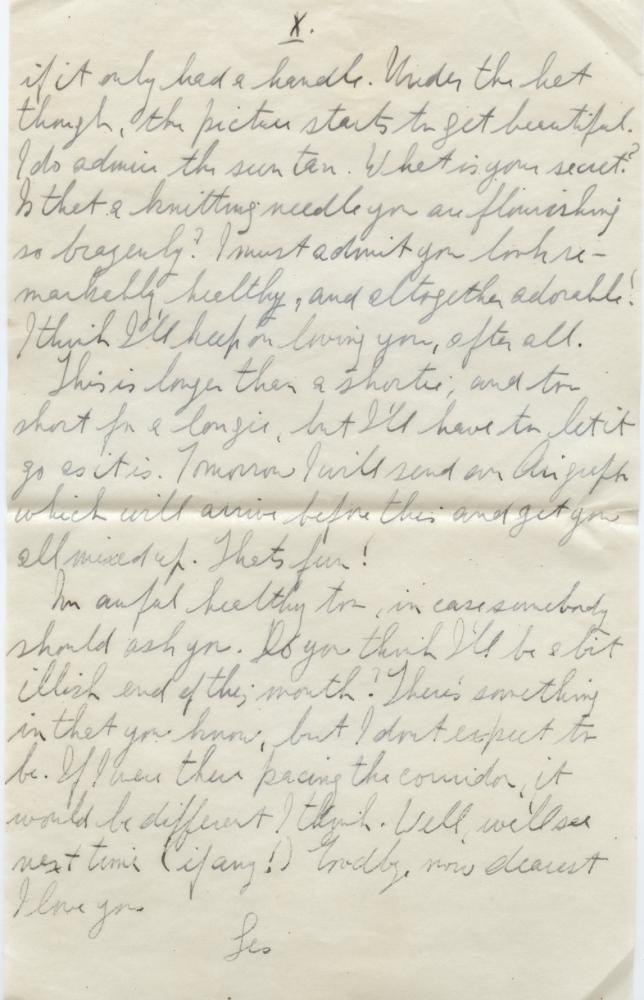 X.
if it only had a handle. Under the hat
though, the picture starts to get beautiful.
I do admire the sun tan. What is your secret?
Is that a knitting needle you are flourishing
so brazenly? I must admit you look re-
markably healthy, and altogether adorable!
I think I'll keep on loving you, after all.
This is longer than a shortie, and too
short for a longie, but I'll have to let it
go as it is. Tomorrow I will send an Airgraph
which will arrive before this and get you
all mixed up. Thats fun!
Im awful healthy too, in case somebody
should ask you. Do you think I'll be a bit
illish end of this month? There's something
in that you know, but I dont expect to
be. If I were there pacing the corridor, it
would be different I think. Well, we'll see
next time (if any!) Goodby, now dearest
I love you
Les